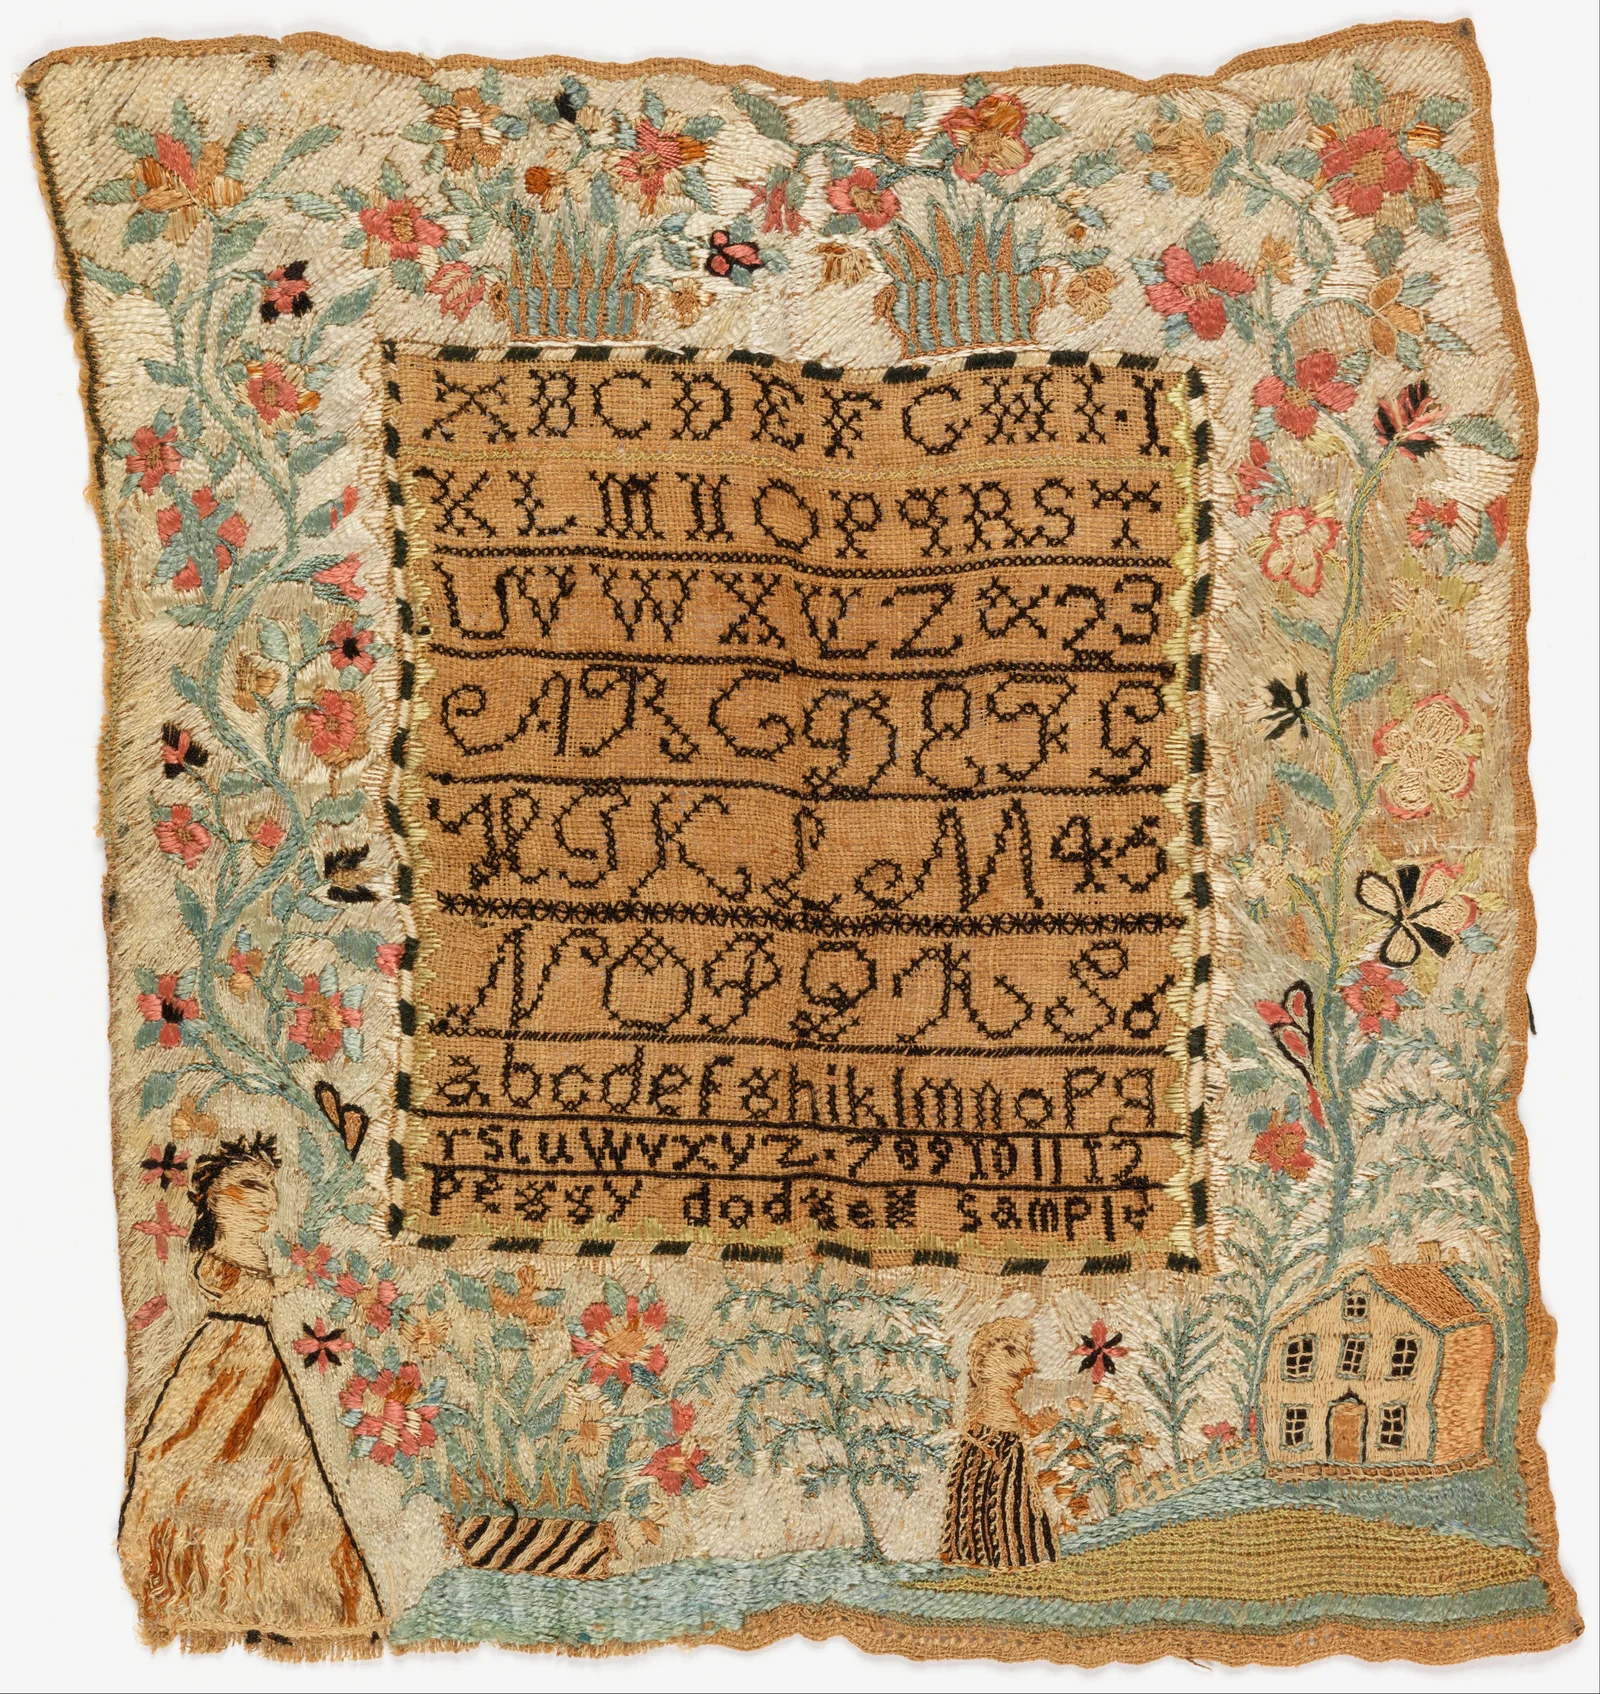 A B C D E F G H I · I
K L M N O P q R S T
U V W X Y Z & 2 3
A B C D E F G
H I K L M 4 5
N O P Q R S 6
a b c d e f g h i k l m n o p q
r s t u w v x y z · 7 8 9 10 11 12
Peggy dodge sample